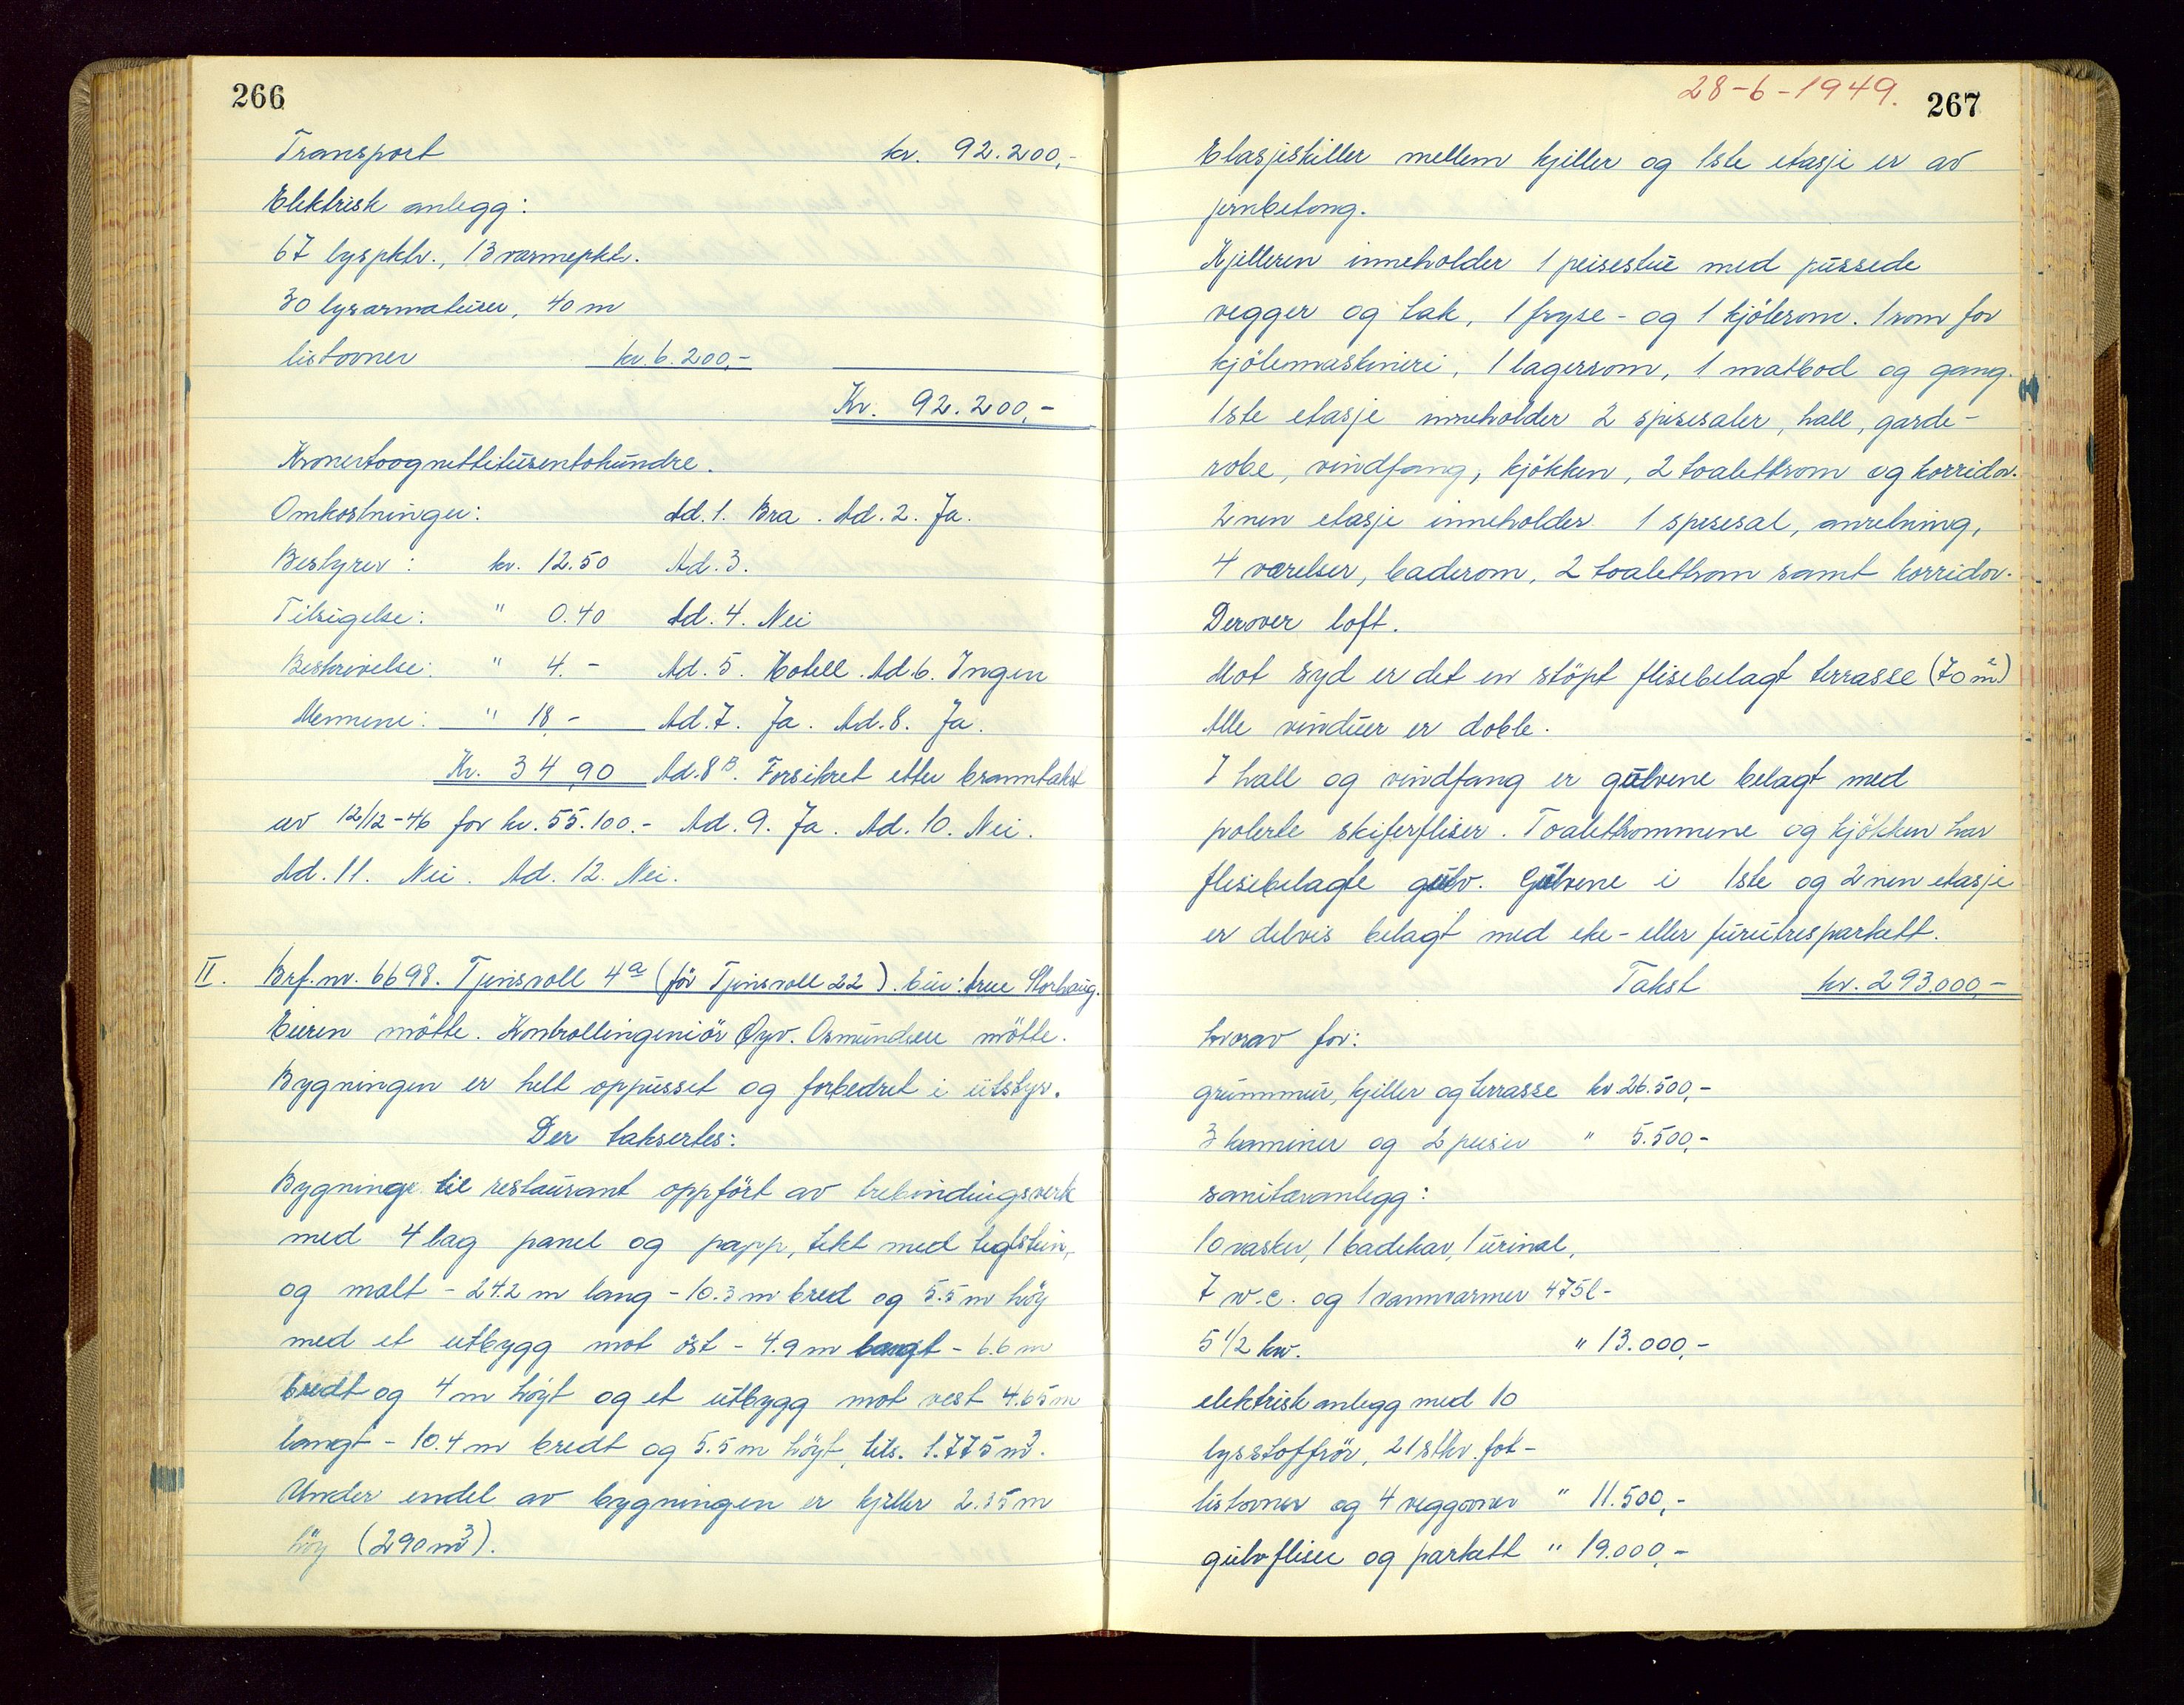 266
Transport kr. 92.200,-
Elektrisk anlegg:
67 lyspktr., 13 varmepktr.
30 lysarmaturer, 40 m
listovner kr. 6.200,-
Kr. 92.200,-
Kronertoognittitusentohundre.
Omkostninger: Ad. 1. Bra. Ad. 2. Ja.
Bestyrer: kr. 12.50 Ad. 3.
Tilsigelse: " 0.40 Ad. 4. Nei
Beskrivelse: " 4.- Ad. 5. Hotell. Ad. 6. Ingen
Mennene: " 18,- Ad. 7. Ja. Ad. 8. Ja.
Kr. 34,90 Ad. 8B. Forsikret etter branntakst
av 12/12-46 for kr. 55.100.- Ad. 9. Ja. Ad. 10. Nei.
Ad. 11. Nei. Ad. 12. Nei.
II. Brf. nr. 6698. Tjensvoll 4a (för Tjensvoll 22). Eier: Arne Storhaug.
Eieren mötte. Kontrollingeniör Öyv. Osmundsen mötte.
Bygningen er helt oppusset og forbedret i utstyr.
Der takseres:
Bygning til restaurant oppfört av trebindingsverk
med 4 lag panel og papp, tekt med teglstein,
og malt - 24.2 m lang - 10.3 m bred og 5.5 m höy
med et utbygg mot öst - 4.9 m langt - 6.6 m
bredt og 4 m höyt og et utbygg mot vest 4.65 m
langt - 10.4 m bredt og 5.5 m höyt, tils. 1.775 m³.
Under endel av bygningen er kjeller 2.35 m
höy (290 m³).
28-6-1949. 267
Etasjeskiller mellem kjeller og 1ste etasje er av
jernbetong.
Kjelleren inneholder 1 peisestue med pussede
vegger og tak, 1 fryse- og 1 kjölerom. 1 rom for
kjölemaskineri, 1 lagerrom, 1 matbod og gang.
1ste etasje inneholder 2 spisesaler, hall, garde-
robe, vindfang, kjökken, 2 toalettrom og korridor.
2nen etasje inneholder 1 spisesal, anretning,
4 værelser, baderom, 2 toalettrom samt korridor.
Derover loft.
Mot syd er det en stöpt flisebelagt terrasse (70 m²)
Alle vinduer er doble.
I hall og vindfang er gulvene belagt med
polerte skiferfliser. Toalettrommene og kjökken har
flisebelagte gulv. Gulvene i 1ste og 2nen etasje
er delvis belagt med eke- eller furutresparkett.
Takst kr. 293.000,-
hvorav for:
grunnmur, kjeller og terrasse kr. 26.500,-
3 kaminer og 2 peiser " 5.500,-
sanitæranlegg:
10 vasker, 1 badekar, 1 urinal,
7 w.c. og 1 vannvarmer 475 l -
5 1/2 kw. " 13.000,-
elektrisk anlegg med 10
lysstoffrör, 21 stkr. fot-
listovner og 4 veggovner " 11.500,-
gulvfliser og parkett " 19.000,-